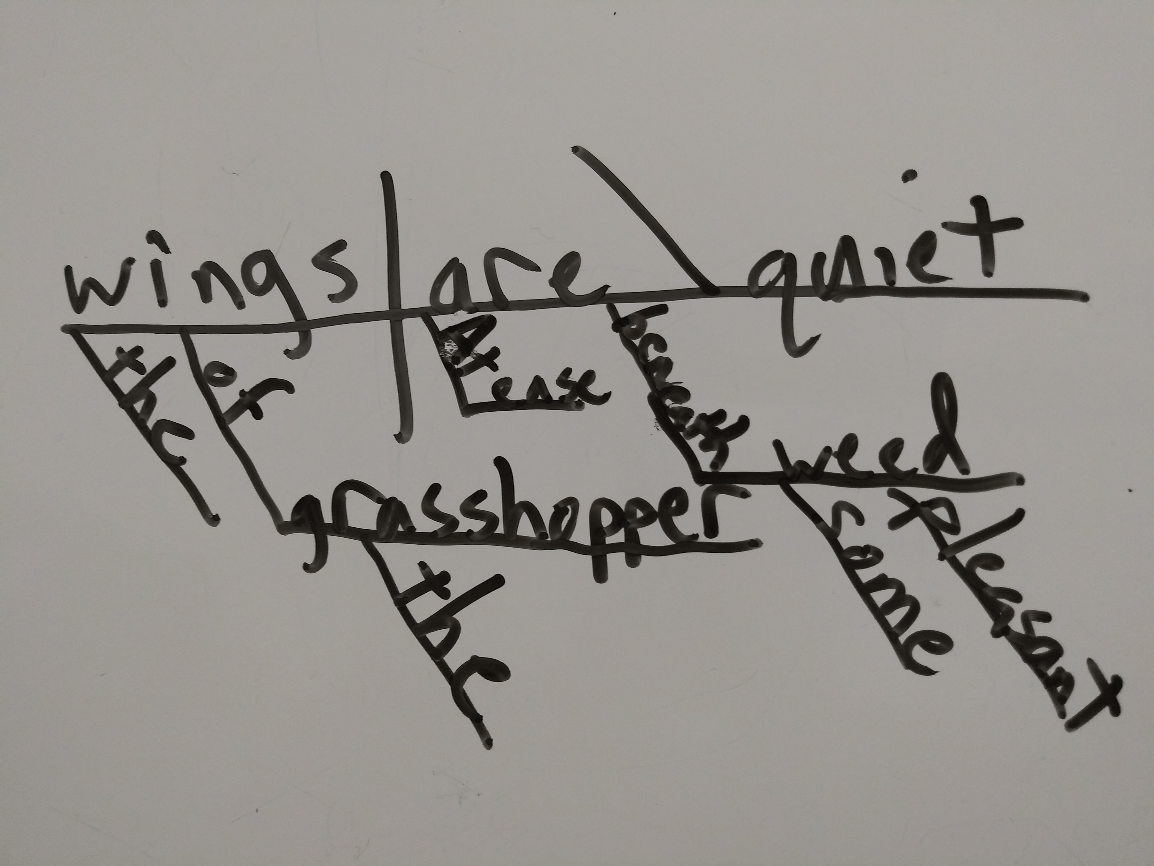 wings are quiet
the of At ease beneath
grasshopper weed
the some pleasant